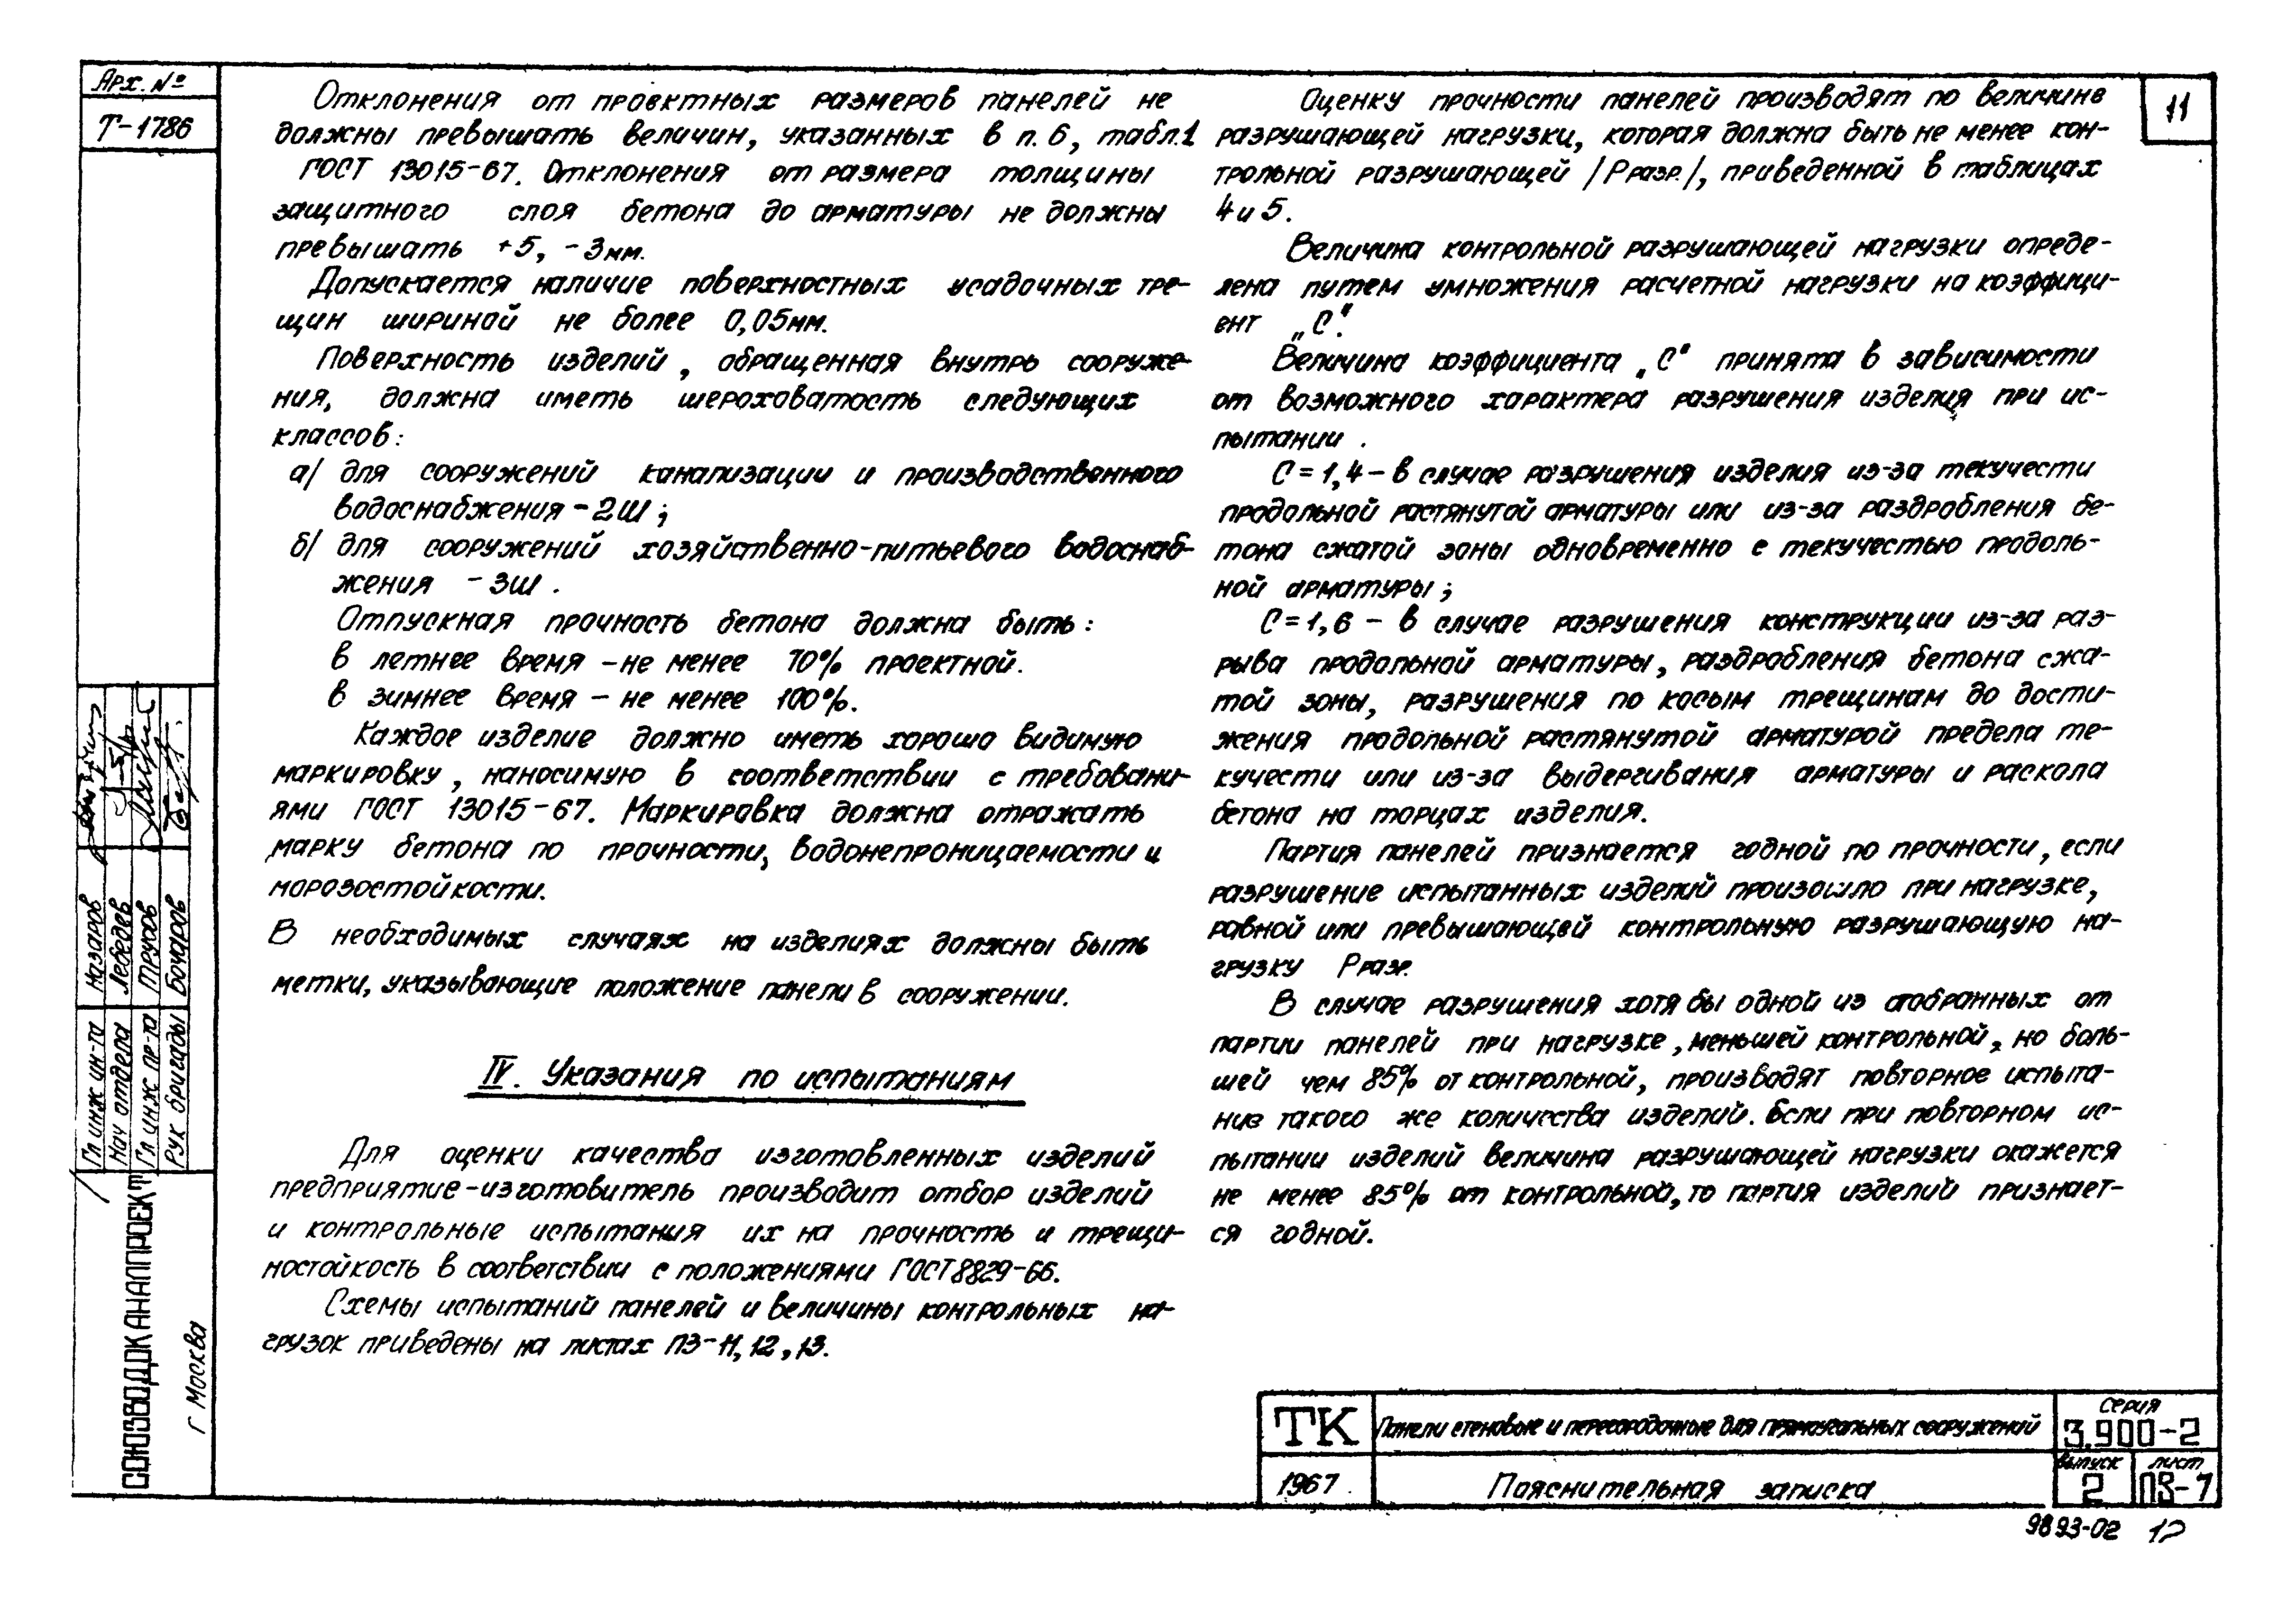 Арх. №
Т-1786
11
Отклонения от проектных размеров панелей не
должны превышать величин, указанных в п. 6, табл.1
ГОСТ 13015-67. Отклонения от размера толщины
защитного слоя бетона до арматуры не должны
превышать +5, -3мм.
Допускается наличие поверхностных усадочных тре-
щин шириной не более 0,05мм.
Поверхность изделий, обращенная внутрь сооруже-
ния, должна иметь шероховатость следующих
классов:
а/ для сооружений канализации и производственного
водоснабжения - 2Ш;
б/ для сооружений хозяйственно-питьевого водоснаб-
жения - 3Ш.
Отпускная прочность бетона должна быть:
в летнее время - не менее 70% проектной.
в зимнее время - не менее 100%.
Каждое изделие должно иметь хорошо видимую
маркировку, наносимую в соответствии с требовани-
ями ГОСТ 13015-67. Маркировка должна отражать
марку бетона по прочности, водонепроницаемости и
морозостойкости.
В необходимых случаях на изделиях должны быть
метки, указывающие положение панели в сооружении.
IV. Указания по испытаниям
Для оценки качества изготовленных изделий
предприятие-изготовитель производит отбор изделий
и контрольные испытания их на прочность и трещи-
ностойкость в соответствии с положениями ГОСТ 8829-66.
Схемы испытаний панелей и величины контрольных на-
грузок приведены на листах ПЗ-11, 12, 13.
Оценку прочности панелей производят по величине
разрушающей нагрузки, которая должна быть не менее кон-
трольной разрушающей /Рразр./, приведенной в таблицах
4 и 5.
Величина контрольной разрушающей нагрузки опреде-
лена путем умножения расчетной нагрузки на коэффици-
ент „С".
Величина коэффициента „С" принята в зависимости
от возможного характера разрушения изделия при ис-
пытании.
С = 1,4 - в случае разрушения изделия из-за текучести
продольной растянутой арматуры или из-за раздробления бе-
тона сжатой зоны одновременно с текучестью продоль-
ной арматуры;
С = 1,6 - в случае разрушения конструкции из-за раз-
рыва продольной арматуры, раздробления бетона сжа-
той зоны, разрушения по косым трещинам до дости-
жения продольной растянутой арматурой предела те-
кучести или из-за выдергивания арматуры и раскола
бетона на торцах изделия.
Партия панелей признается годной по прочности, если
разрушение испытанных изделий произошло при нагрузке,
равной или превышающей контрольную разрушающую на-
грузку Рразр.
В случае разрушения хотя бы одной из отобранных от
партии панелей при нагрузке, меньшей контрольной, но боль-
шей чем 85% от контрольной, производят повторное испыта-
ние такого же количества изделий. Если при повторном ис-
пытании изделий величина разрушающей нагрузки окажется
не менее 85% от контрольной, то партия изделий признает-
ся годной.
Гл инж ин-та Назаров
Нач отдела Лебедев
Гл инж пр-та Трубов
Рук бригады Бочаров
СОЮЗВОДОКАНАЛПРОЕКТ
г Москва
ТК
Панели стеновые и перегородочные для прямоугольных сооружений
Серия
3.900-2
1967.
Пояснительная записка
выпуск
2
лист
ПЗ-7
9893-02 12